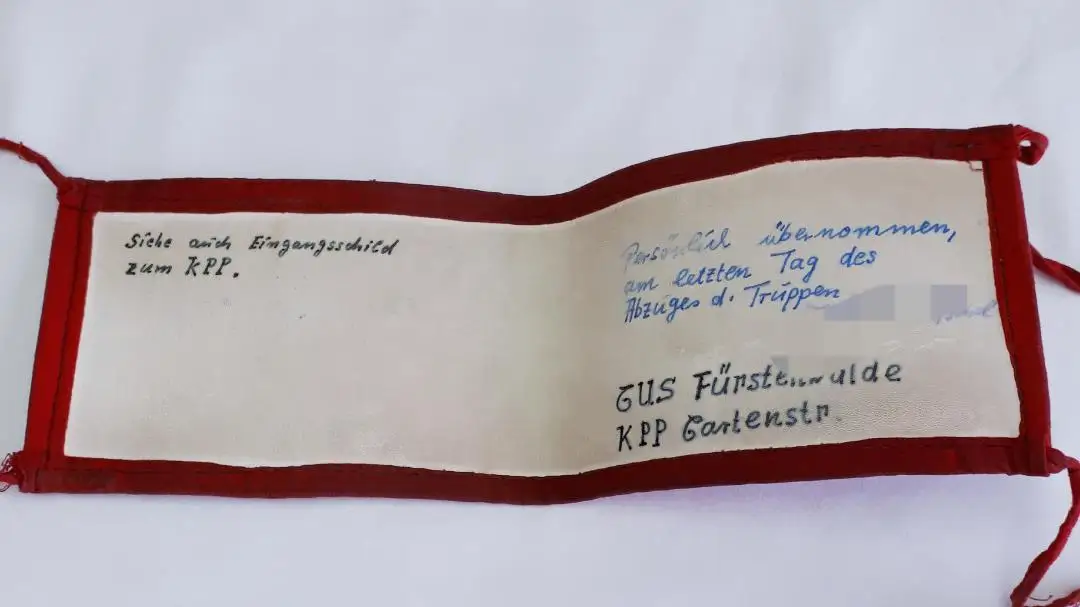 Siehe auch Eingangsschild
zum KPP.
Persönlich übernommen,
am letzten Tag des
Abzuges d. Truppen
GUS Fürstenwalde
KPP Gartenstr.